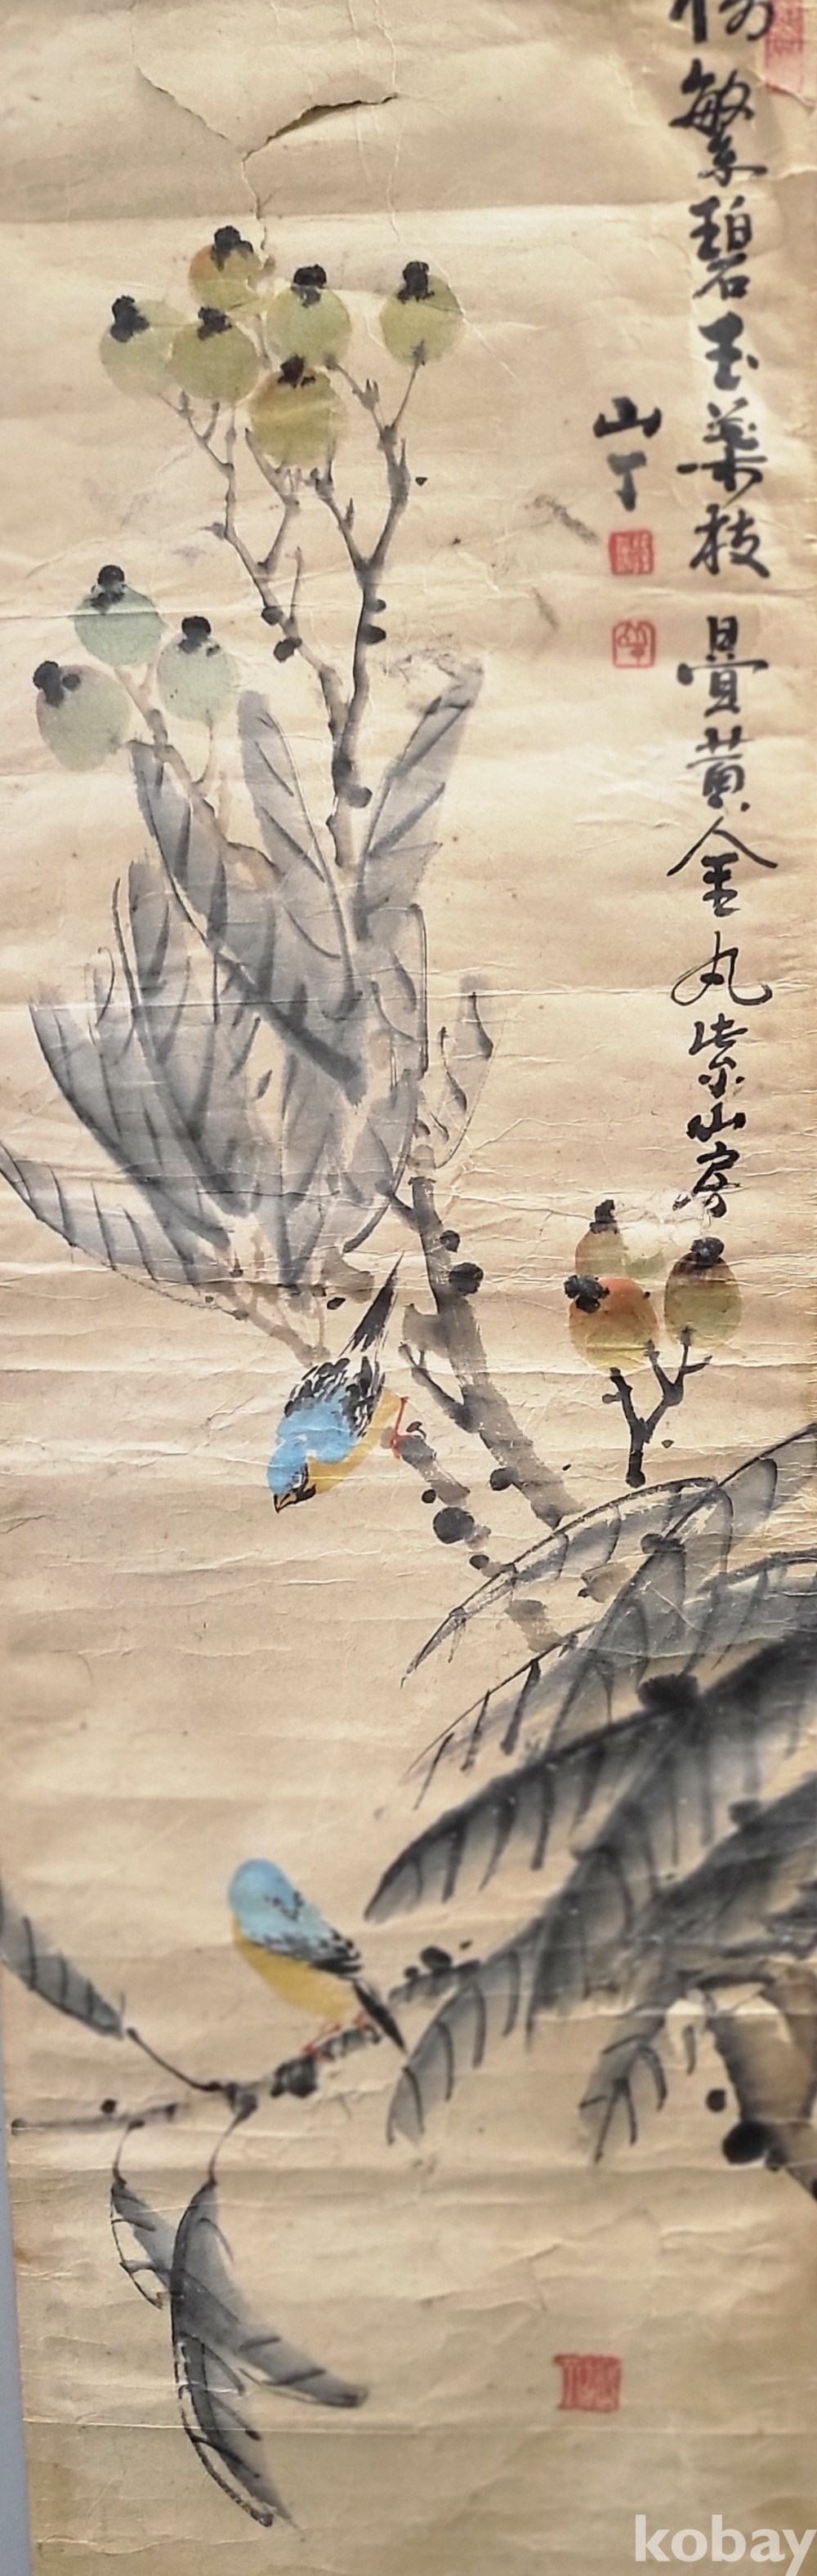 繁碧玉葉枝疊黄金丸紫山房
山丁
kobay